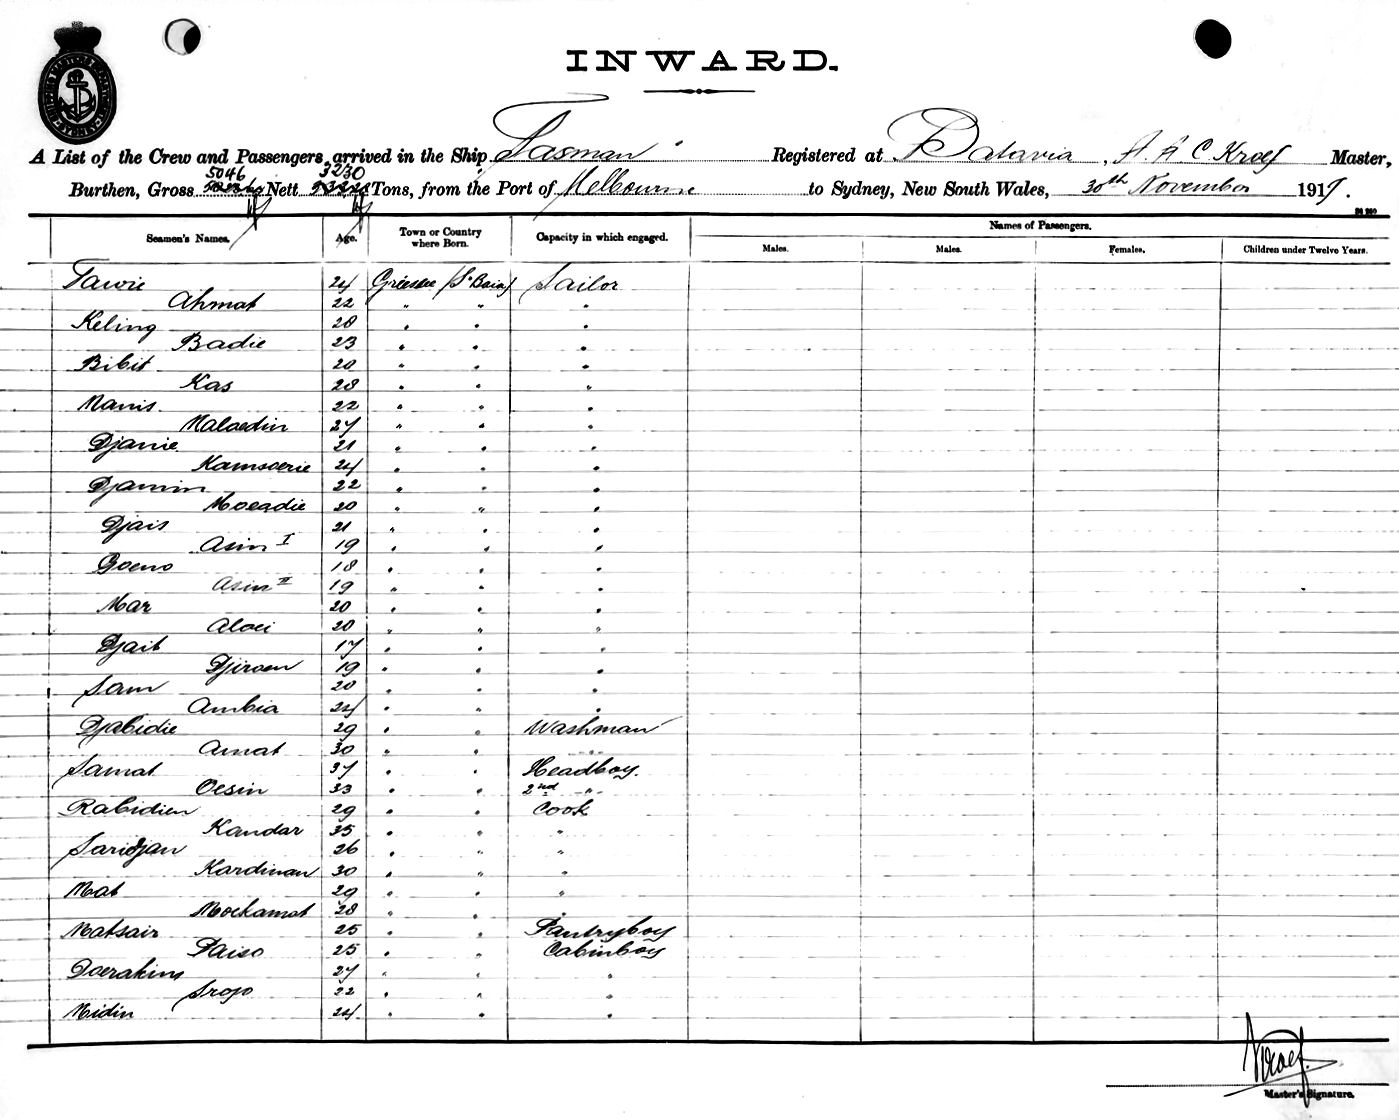 INWARD.
A List of the Crew and Passengers arrived in the Ship Tasman Registered at Batavia, A. A. C Kroef Master,
5046 3230
Burthen, Gross Nett Tons, from the Port of Melbourne to Sydney, New South Wales, 30th November 1917.
Names of Passengers.
Seamen's Names. Age. Town or Country where Born. Capacity in which engaged. Males. Males. Females. Children under Twelve Years.
Tawie 24 Grissee (S. Baia) Sailor
Ahmat 22 " " "
Keling 28 " " "
Badie 23 " " "
Bibit 20 " " "
Kas 28 " " "
Nanis 22 " " "
Nalaedin 27 " " "
Djanie 21 " " "
Kamsoerie 24 " " "
Djamin 22 " " "
Moeadie 20 " " "
Djais 21 " " "
Asin I 19 " " "
Goeno 18 " " "
Asin II 19 " " "
Mar 20 " " "
Aloei 20 " " "
Djait 17 " " "
Djiroen 19 " " "
Sam 20 " " "
Ambia 24 " " "
Djabidie 29 " " Washman
Amat 30 " " "
Samat 37 " " Headboy.
Oesin 33 " " 2nd "
Rabidien 29 " " Cook
Kandar 35 " " "
Saridjan 26 " " "
Kardinan 30 " " "
Mat 29 " " "
Mochamat 28 " " "
Matsair 25 " " Pantryboy
Paiso 25 " " Cabinboy
Doerakim 27 " " "
Srojo 22 " " "
Nidin 24 " " "
Kroef
Master's Signature.